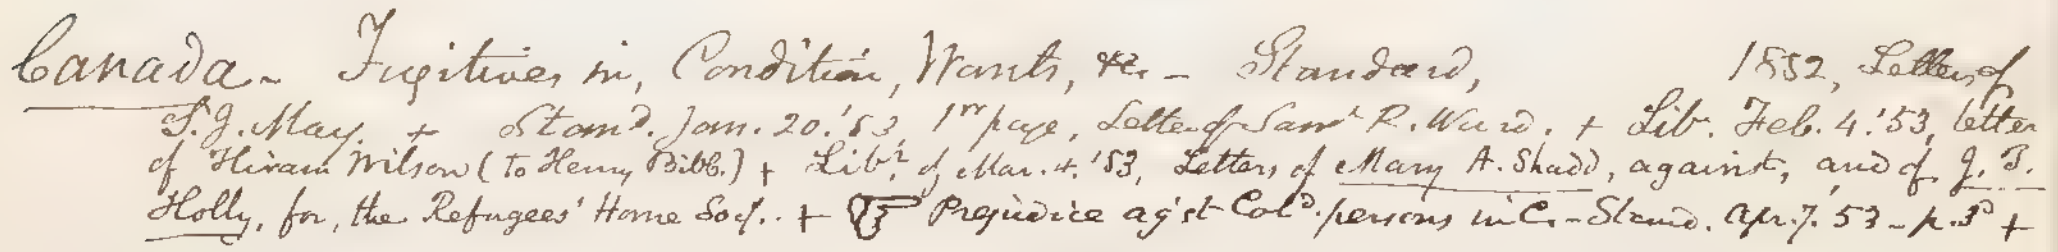 Canada - Fugitives in, Condition, Wants, &c. - Standard, 1852, Letters of
S. J. May. + Stand. Jan. 20. '53, 1st page, Letter of Saml R. Ward. + Lib. Feb. 4. '53, letter
of Hiram Wilson (to Henry Bibb.) + Libr. of Mar. 4. '53, Letters of Mary A. Shadd, against, and of J. T.
Holly, for, the Refugees' Home Socy. + ☞ Prejudice ag'st Cold. persons in C. - Stand. Apr. 7. 53 - p. 3d +